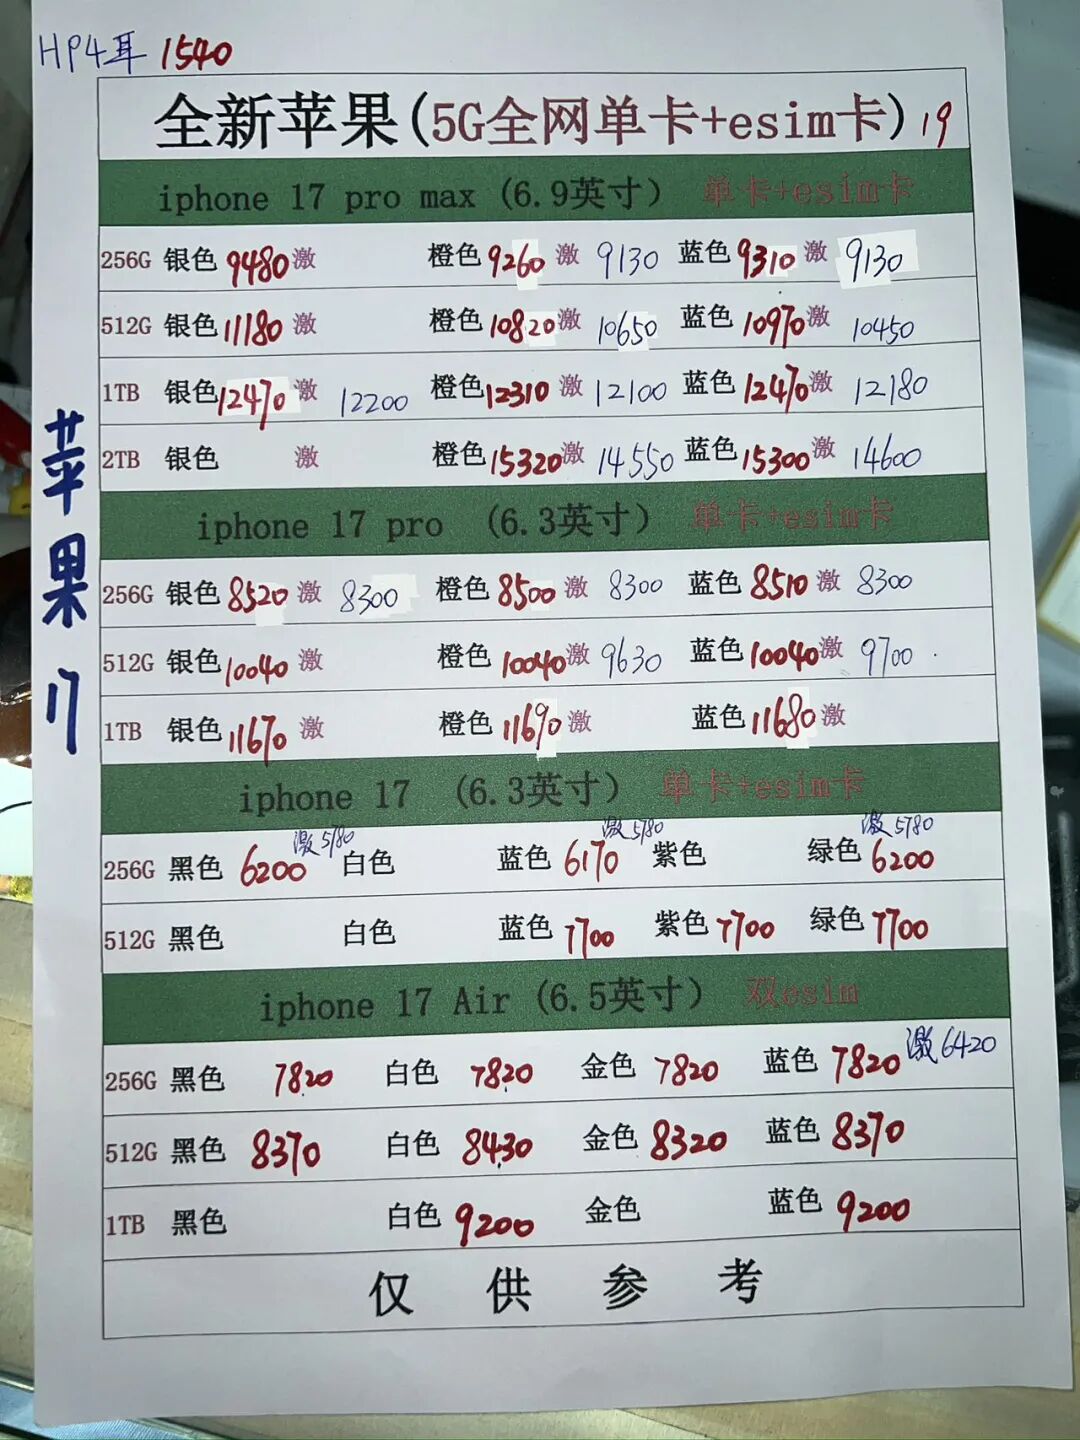 HP4耳 1540
全新苹果(5G全网单卡+esim卡) 19
iphone 17 pro max (6.9英寸) 单卡+esim卡
256G 银色 9480 激 橙色 9260 激 9130 蓝色 9310 激 9130
512G 银色 11180 激 橙色 10820 激 10650 蓝色 10970 激 10450
1TB 银色 12470 激 12200 橙色 12310 激 12100 蓝色 12470 激 12180
2TB 银色 激 橙色 15320 激 14550 蓝色 15300 激 14600
苹果17
iphone 17 pro (6.3英寸) 单卡+esim卡
256G 银色 8520 激 8300 橙色 8500 激 8300 蓝色 8510 激 8300
512G 银色 10040 激 橙色 10040 激 9630 蓝色 10040 激 9700
1TB 银色 11670 激 橙色 11690 激 蓝色 11680 激
iphone 17 (6.3英寸) 单卡+esim卡
激5780 激5780 激5780
256G 黑色 6200 白色 蓝色 6170 紫色 绿色 6200
512G 黑色 白色 蓝色 7700 紫色 7700 绿色 7700
iphone 17 Air (6.5英寸) 双esim
256G 黑色 7820 白色 7820 金色 7820 蓝色 7820 激6420
512G 黑色 8370 白色 8430 金色 8320 蓝色 8370
1TB 黑色 白色 9200 金色 蓝色 9200
仅供参考